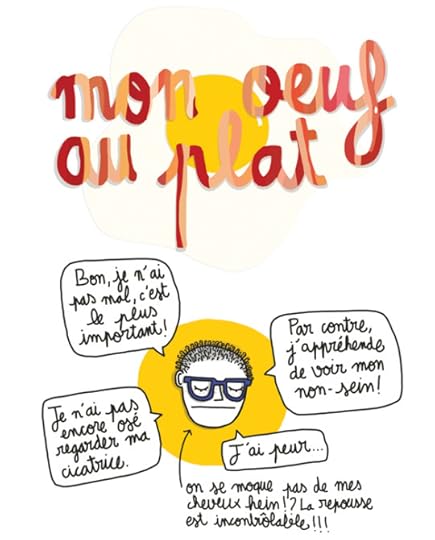 mon oeuf
au plat
Bon, je n'ai
pas mal, c'est
le plus
important!
Par contre,
j'appréhende
de voir mon
non-sein!
Je n'ai pas
encore osé
regarder ma
cicatrice.
J'ai peur...
on se moque pas de mes
cheveux hein!? La repousse
est incontrôlable!!!